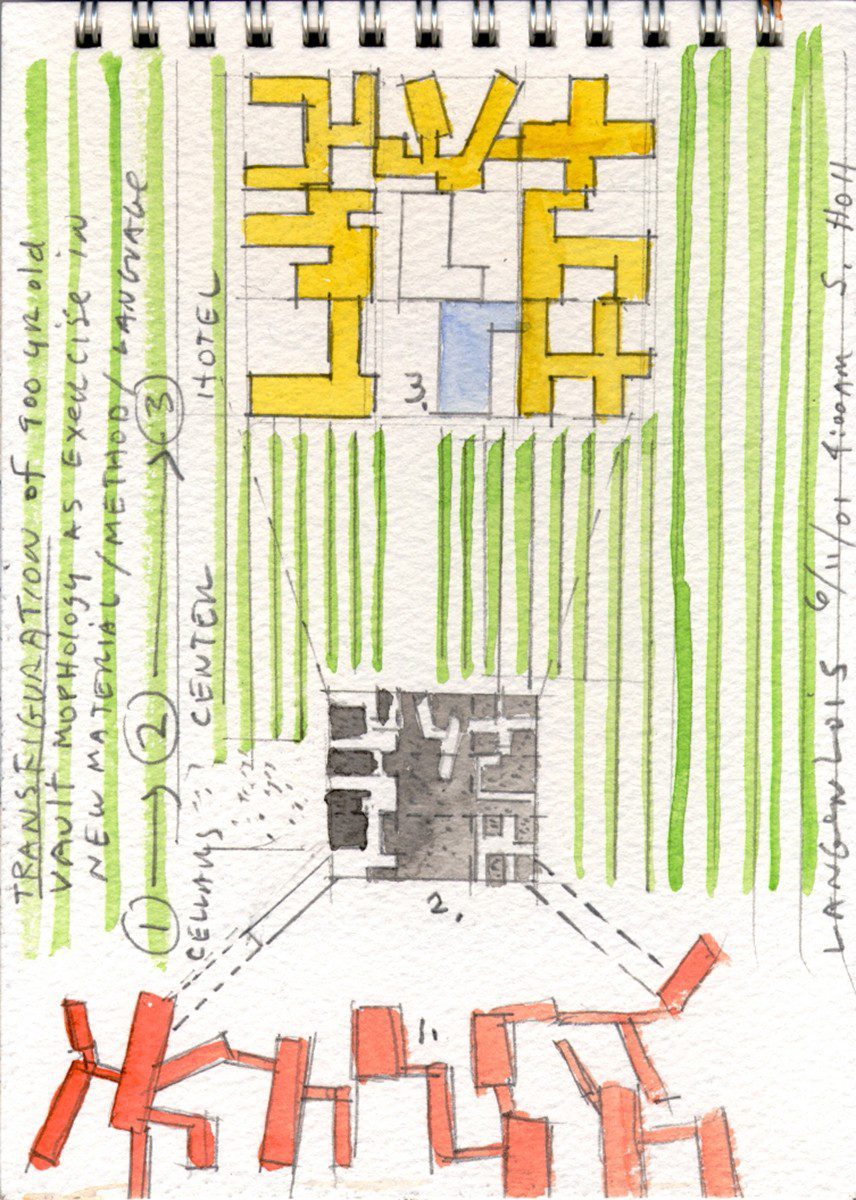 TRANSFIGURATION of 900 yR old
VAULT MOPHOLOGY AS EXERCISE IN
NEW MATERIAL / METHOD / LANGUAGE
1 → 2 → 3
CELLARS CENTER HOTEL
3.
2.
1.
LANGENLOIS 6/11/01 4:00AM S. HOLL